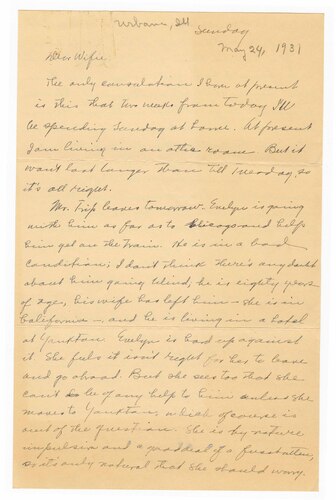 Urbana, Ill
Sunday
May 24, 1931
Dear Wife:
The only consolation I have at present
is this that two weeks from today I'll
be spending Sunday at home. At present
I am living in another room. But it
won't last longer than till Tuesday, so
it's all right.
Mr. Trip leaves tomorrow. Evelyn is going
with him as far as to Chicago and help
him get on the train. He is in a bad
condition; I don't think there's any doubt
about him going blind, he is eighty years
of age, his wife has left him – she is in
California –, and he is living in a hotel
at Yankton. Evelyn is hard up against
it. She feels it isn't right for her to leave
and go abroad. But she sees too that she
can't be of any help to him unless she
moves to Yankton, which of course is
out of the question. She is by nature
impulsive and a good deal of a
so it's only natural that she should worry.